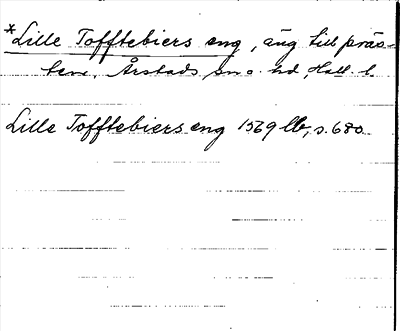 *Lille Tofftebiers eng, äng till präs-
ten, Årstads sn o. hd, Hall. l.
Lille Tofftebiers eng 1569 llr, s. 680